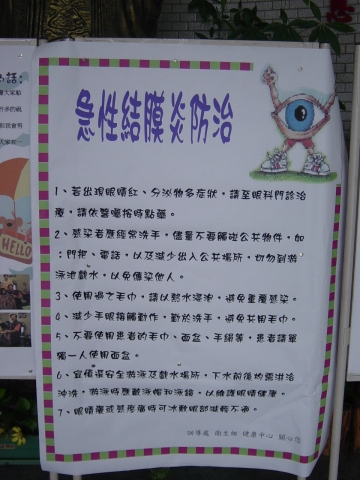 急性結膜炎防治
1、若出現眼睛紅、分泌物多症狀，請至眼科門診治
療，請依醫囑按時點藥。
2、感染者應經常洗手，儘量不要觸碰公共物件，如
：門把、電話，以及減少出入公共場所，切勿到游
泳池戲水，以免傳染他人。
3、使用過之毛巾，請以熱水浸泡，避免重覆感染。
4、減少手眼接觸動作，勤於洗手，避免共用毛巾。
5、不要使用患者的毛巾、面盆、手絹等，患者請單
獨一人使用面盆。
6、宜慎選安全游泳及戲水場所，下水前後均需淋浴
沖洗，游泳時應戴泳帽和泳鏡，以維護眼睛健康。
7、眼睛癢或甚疼痛時可冰敷眼部減輕不適。
訓導處 衛生組 健康中心 關心您
HELLO